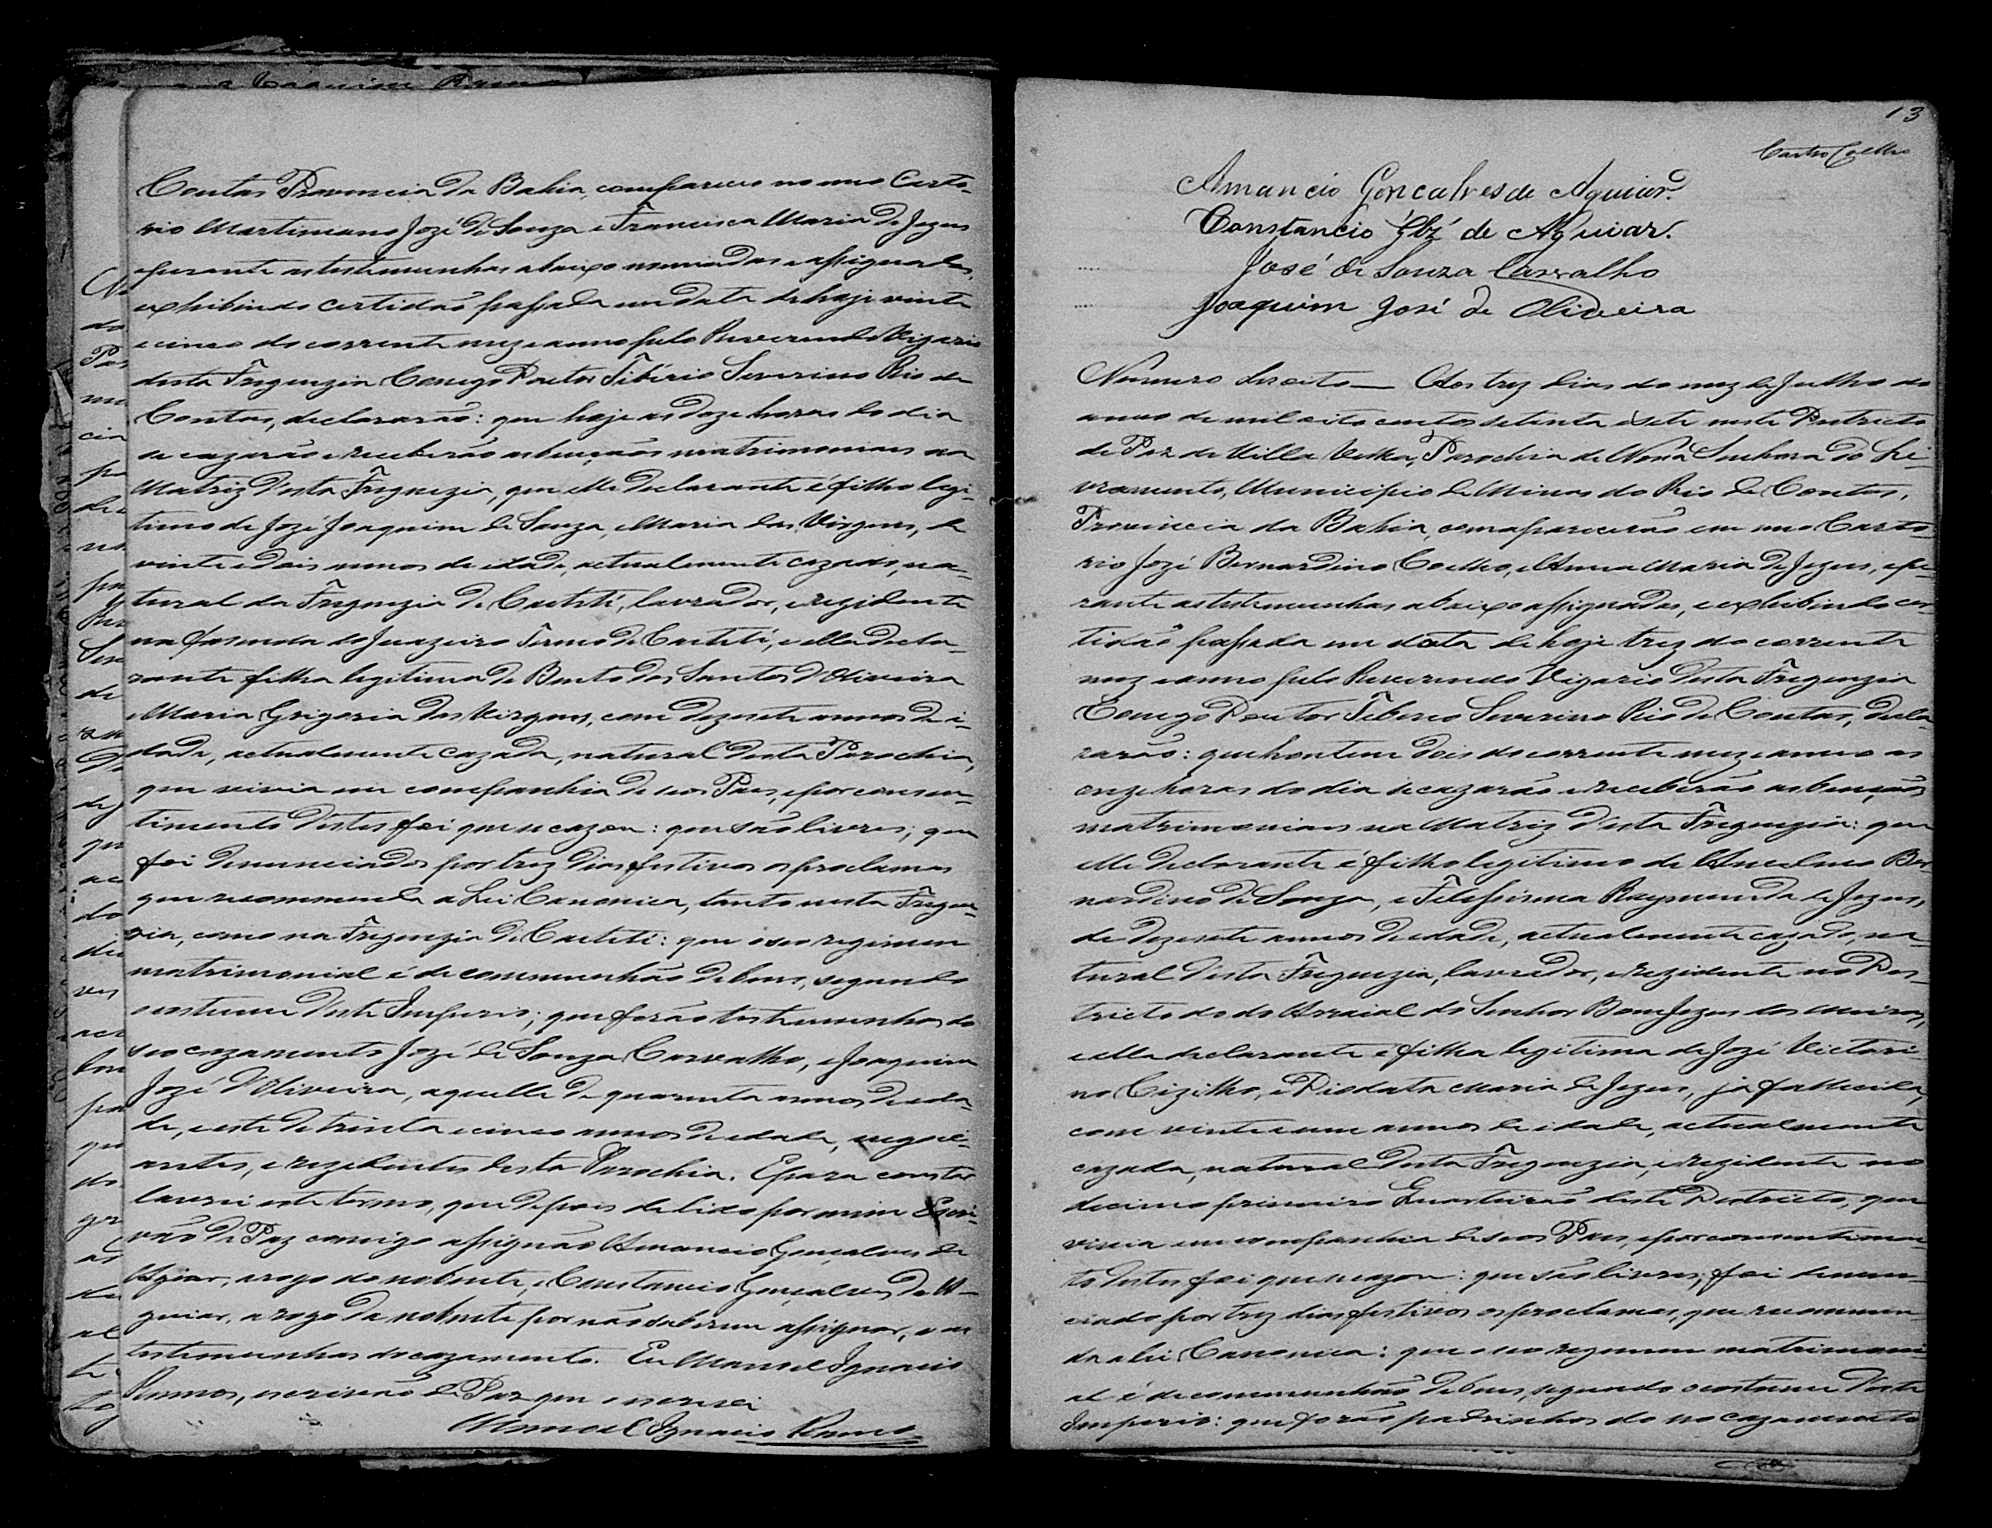 Contas Provincia da Bahia, comparecêo no meo Carto-
rio Martiniano Jozé de Souza e Francisca Maria de Jezus
e perante as testemunhas abaixo nomiadas e assignadas,
exhibindo certidaõ passada em data de hoje vinte
e cinco do corrente mez e anno pelo Reverendo Vigario
desta Freguezia Conego Doutor Tibério Severino Rio de
Contas, declararaõ: que hoje as doze horas do dia
se cazaraõ e receberaõ as bençaõs matrimoniaes na
Matriz desta Freguezia, que elle declarante é filho legi-
timo de Jozé Joaquim de Souza, e Maria das Virgens, de
vinte e dois annos de idade, actualmente cazado, na-
tural da Freguezia de Caetité, lavrador, e rezidente
na fasenda do Juazeiro Termo de Caetité, e ella decla-
rante filha legitima de Bento dos Santos d'Oliveira
e Maria Grigoria das Virgens, com dezesete annos de i-
dade, actualmente cazada, natural desta Parochia,
que vivia em companhia de seos Paes, e por consen-
timento destes foi que se cazou: que saõ livres; que
foi denunciados por trez dias festivos os proclamas
que recommenda a Lei Canonica, tanto nesta Fregue-
zia, como na Freguezia de Caetité: que o seo regimen
matrimonial é de communhaõ de bens, segundo
costume deste Imperio; que foraõ testemunhas do
seo cazamento Jozé de Souza Carvalho, e Joaquim
Jozé d'Oliveira, aquelle de quarenta annos de ida-
de, e este de trinta e cinco annos de idade, negoci-
antes, e rezidentes desta Parochia. E para constar
lavrei este termo, que depois de lido por mim Escri-
vaõ de Paz comigo assignaõ Amancio Gonçalves de
Aguiar, a rogo do nobente, e Constancio Gonçalves de A-
guiar, a rogo da nobente por naõ saberem assignar, e as
testemunhas do cazamento. Eu Manoel Ignacio
Ramos, escrivaõ de Paz que o escrevi
Manoel Ignacio Ramos
13
Castro Coelho
Amancio Goncalves de Aguiar.
Constancio Glz' de Aguiar.
José de Souza Carvalho
Joaquim José de Oliveira
Numero desoito — Aos trez dias do mez de Julho do
anno de mil oito centos setenta e sete neste Destricto
de Paz de Villa Velha, Parochia de Nossa Senhora do Li-
vramento, Municipio de Minas do Rio de Contas,
Provincia da Bahia, compareceraõ em meo Carto-
rio Jozé Bernardino Coelho, e Anna Maria de Jezus, e pe-
rante as testemunhas abaixo assignadas, e exhibindo cer
tidaõ passada em data de hoje trez do corrente
mez e anno pelo Reverendo Vigario desta Freguezia
Conego Doutor Tiberio Severino Rio de Contas, decla
raraõ: que hontem dois do corrente mez e anno as
onze horas do dia se cazaraõ e receberaõ as bençaõs
matrimoniaes na Matriz desta Freguezia: que
elle declarante é filho legitimo de Ancelmo Ber
nardino de Souza, e Felesmina Raymunda de Jezus,
de dezesete annos de idade, actualmente cazado, na-
tural desta Freguezia, lavrador, e rezidente no Des-
tricto do do Arraial do Senhor Bom Jezus dos Meiras,
e ella declarante é filha legitima de Jozé Victori-
no Cizilho, e Diodata Maria de Jezus, já fallecida,
com vinte e um annos de idade, actualmente
cazada, natural desta Freguezia, e rezidente no
decimo primeiro Quarteiraõ deste Destricto, que
vivia em companhia de seos Paes, e por consentimen-
to destes foi que se cazou: que saõ livres; foi denun-
ciado por trez dias festivos os proclamas, que recommen
da a Lei Canonica: que o seo regimen matrimoni
al é de communhaõ de bens, segundo o costume deste
Imperio: que foraõ padrinhos do seo cazamento